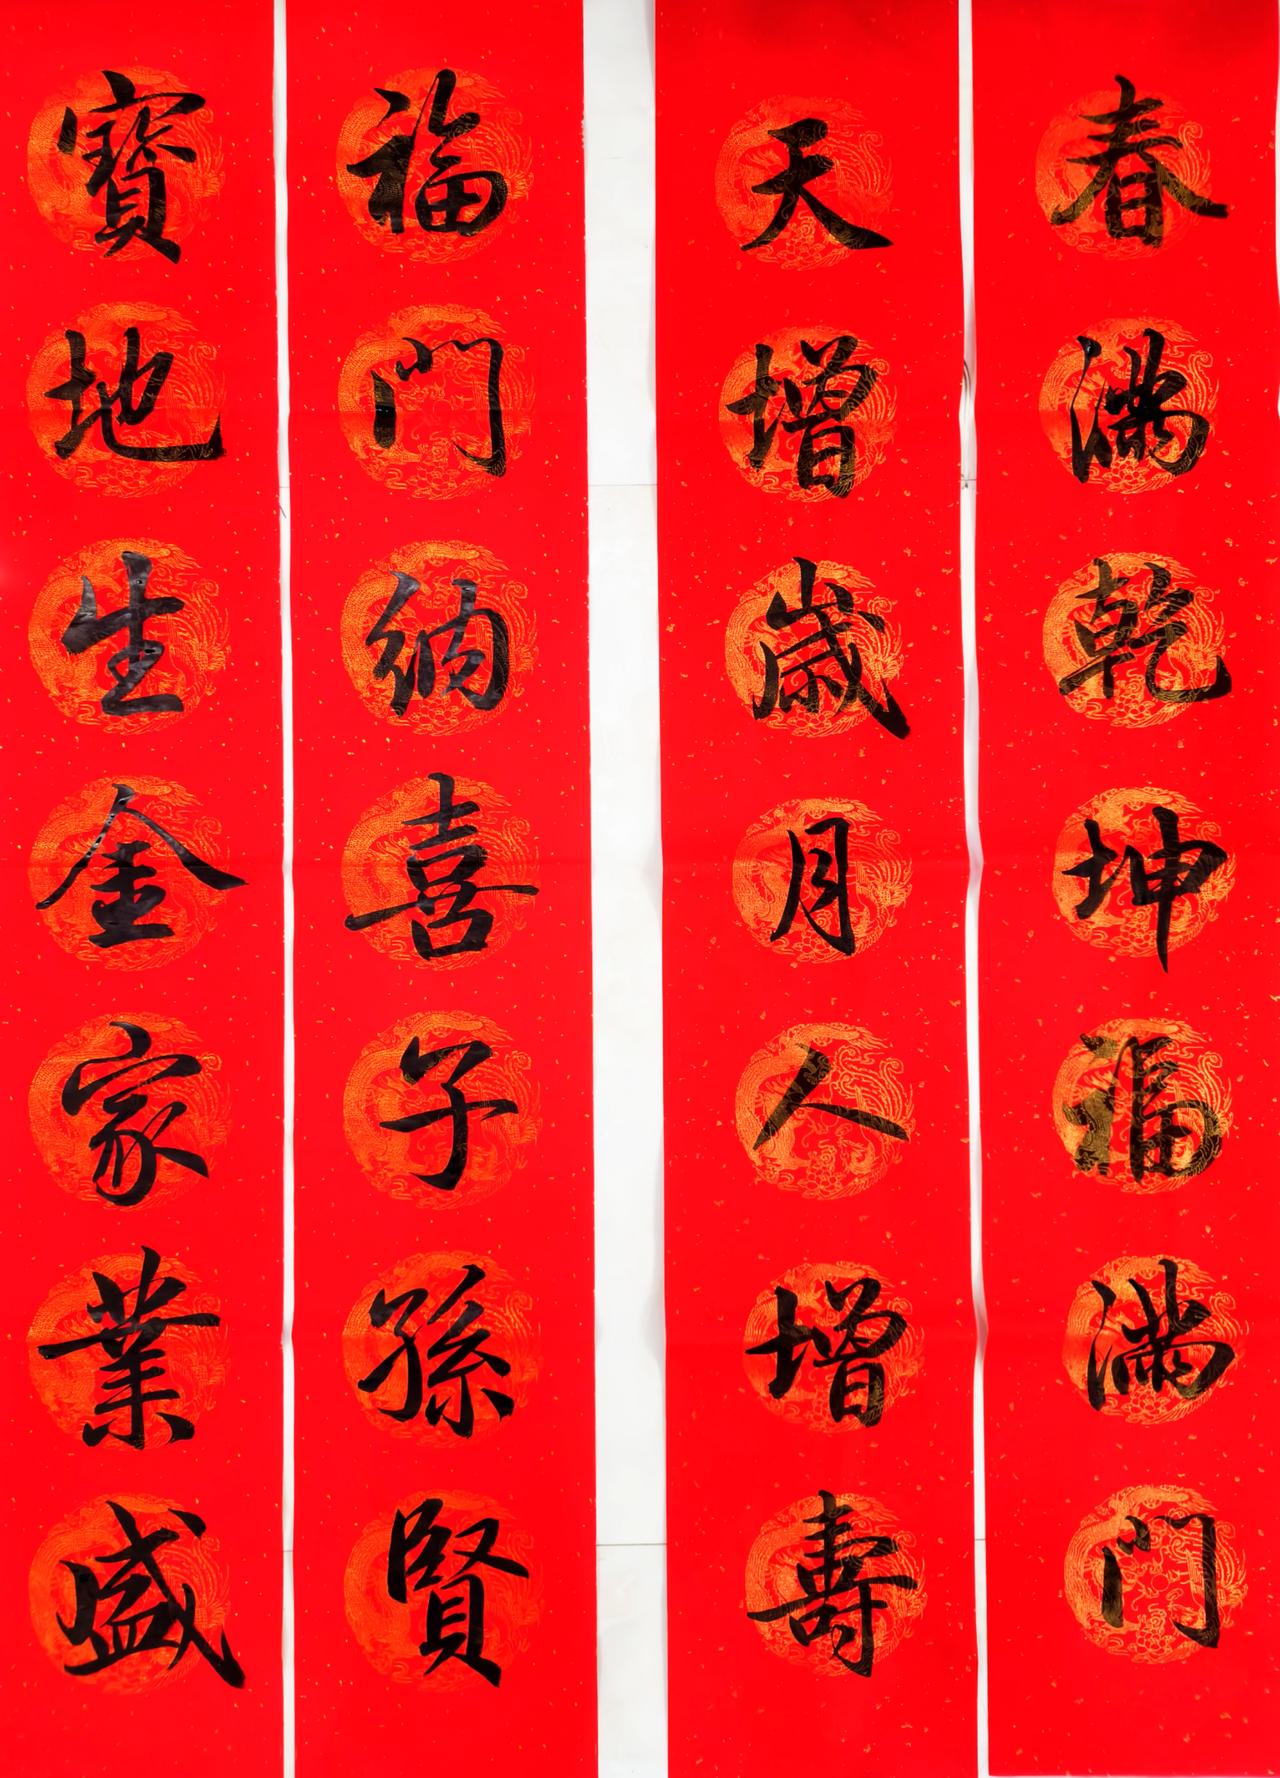 春滿乾坤福滿門
天增歲月人增壽
福門納喜子孫賢
寶地生金家業盛